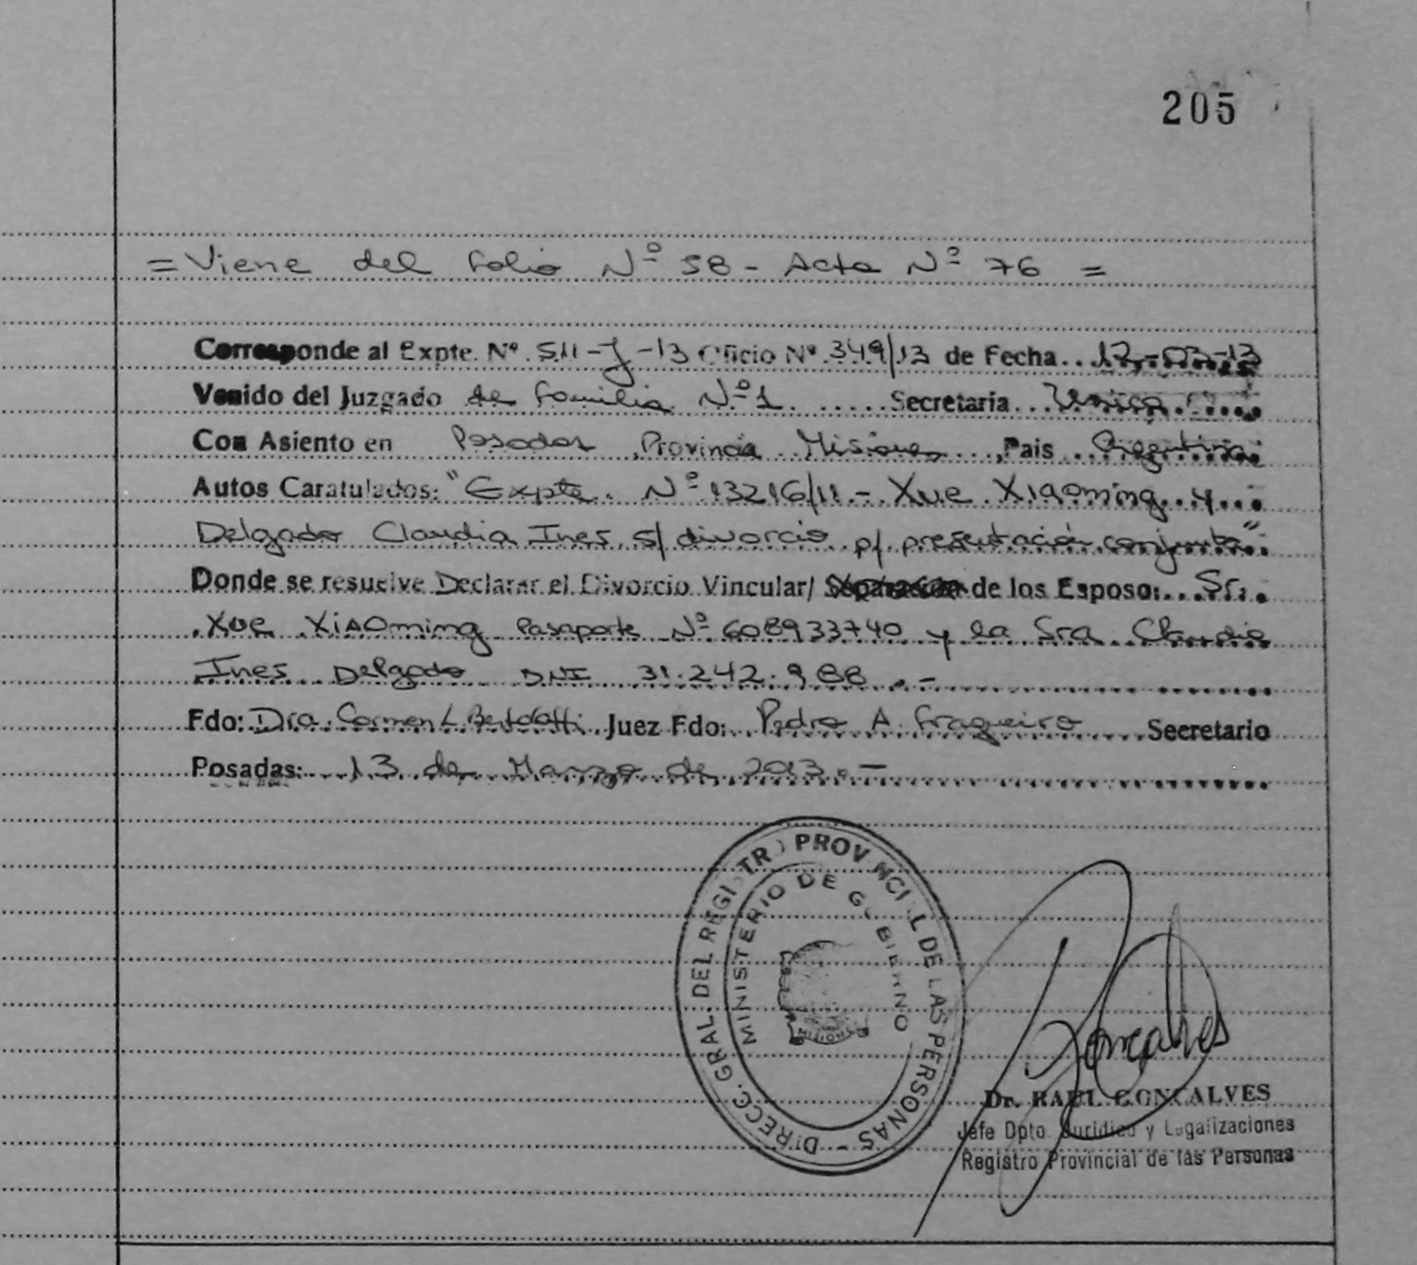 205
= Viene del Folio Nº 58 - Acta Nº 76 =
Corresponde al Expte. Nº 511-J-13 Oficio Nº 349/13 de Fecha 12-03-13
Venido del Juzgado de Familia Nº 1 Secretaria Unica
Con Asiento en Posadas Provincia Misiones, Pais Argentina
Autos Caratulados: "Expte. Nº 13216/11 - Xue Xiaoming y
Delgado Claudia Ines s/ divorcio p/ presentación conjunta"
Donde se resuelve Declarar el Divorcio Vincular/ Separacion de los Esposo: Sr.
Xue Xiaoming Pasaporte Nº 608933740 y la Sra. Claudia
Ines Delgado DNI 31.242.988.-
Fdo: Dra. Carmen L. Juez Fdo: Pedro A. Fragueiro Secretario
Posadas: 13 de Marzo de 2013.-
DIRECC. GRAL. DEL REGISTRO PROVINCIAL DE LAS PERSONAS -
MINISTERIO DE GOBIERNO
MISIONES
Goncalves
Dr. RAUL GONCALVES
Jefe Dpto. Juridico y Legalizaciones
Registro Provincial de las Personas